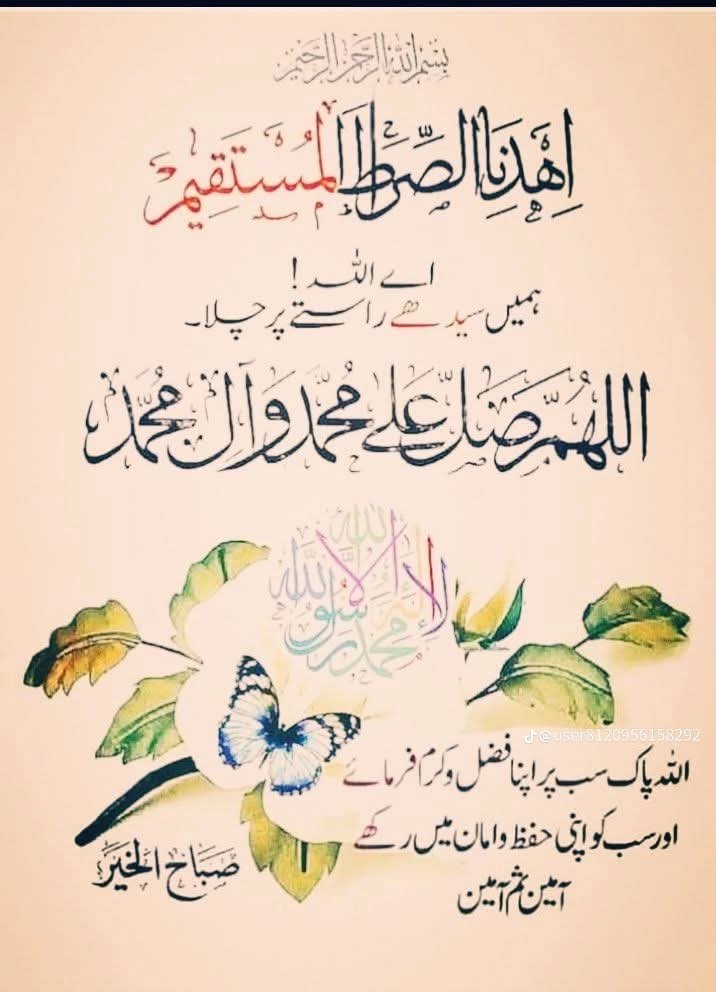 بسم الله الرحمن الرحيم
اِهْدِنَا الصِّرَاطَ الْمُسْتَقِيمَ
اے اللہ !
ہمیں سیدھے راستے پر چلا۔
اللهُمَّ صَلِّ عَلٰى مُحَمَّد وَآلِ مُحَمَّد
لا إله إلا الله محمد رسول الله
@user8120956158292
اللہ پاک سب پر اپنا فضل و کرم فرمائے
اور سب کو اپنی حفظ و امان میں رکھے
آمین ثم آمین
صَبَاحُ الْخَيْر